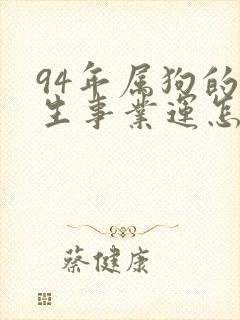 94年属狗的
生事業運怎
蔡健康